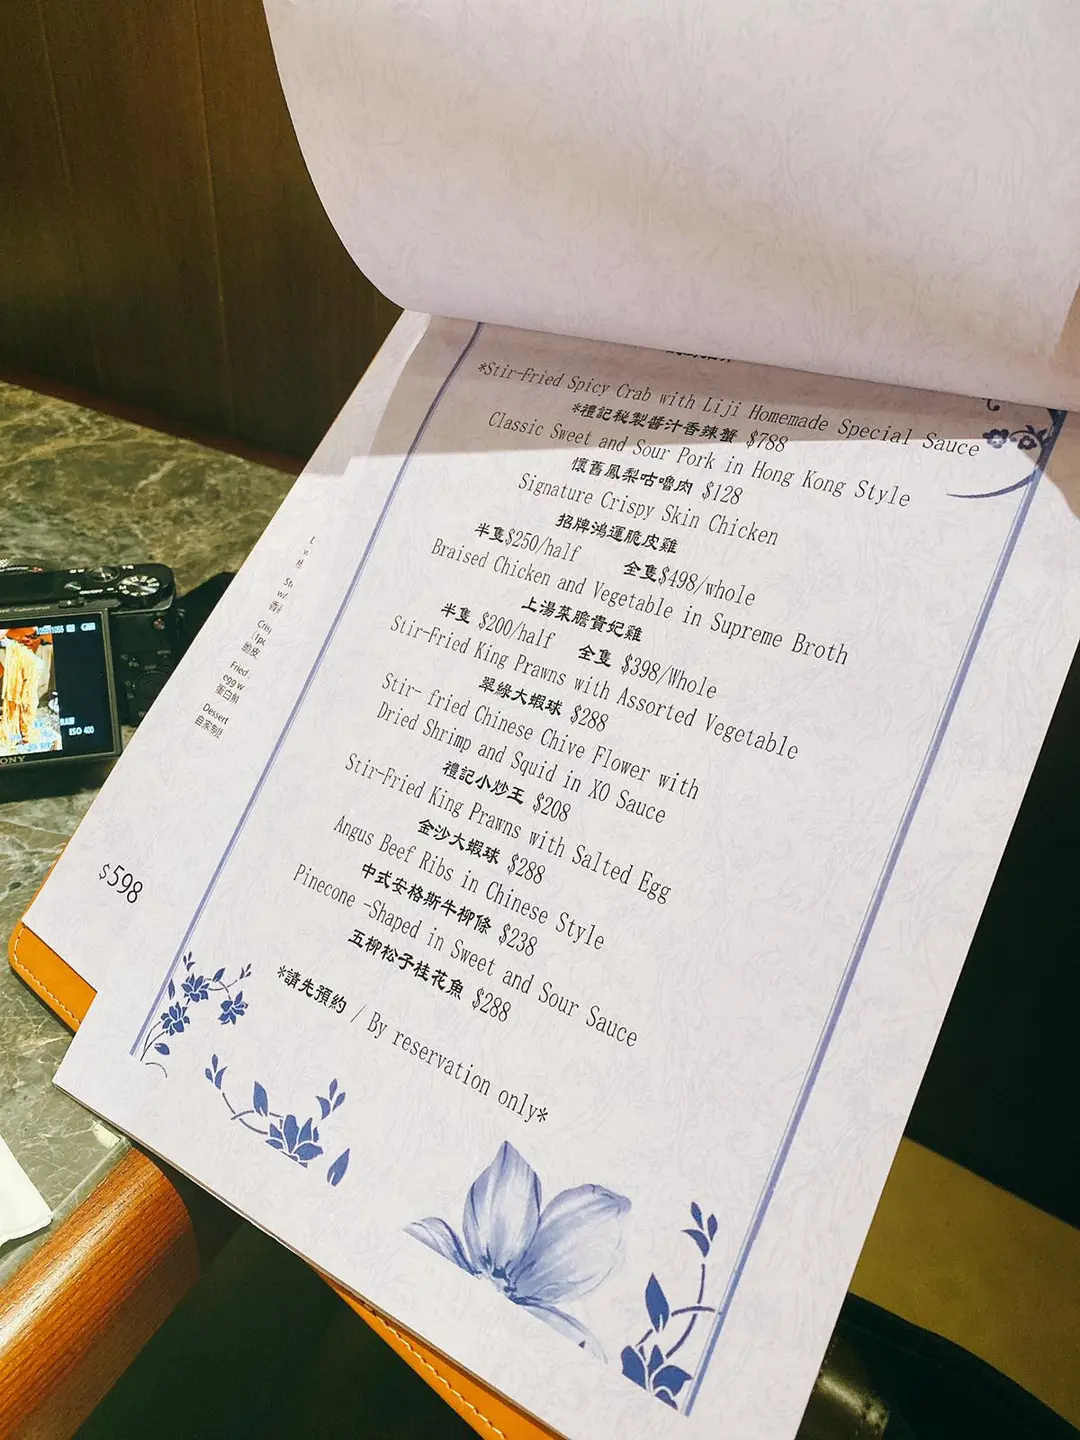 *Stir-Fried Spicy Crab with Liji Homemade Special Sauce
*禮記秘製醬汁香辣蟹 $788
Classic Sweet and Sour Pork in Hong Kong Style
懷舊鳳梨咕嚕肉 $128
Signature Crispy Skin Chicken
招牌鴻運脆皮雞
半隻$250/half 全隻$498/whole
Braised Chicken and Vegetable in Supreme Broth
上湯菜膽貴妃雞
半隻 $200/half 全隻 $398/Whole
Stir-Fried King Prawns with Assorted Vegetable
翠綠大蝦球 $288
Stir- fried Chinese Chive Flower with
Dried Shrimp and Squid in XO Sauce
禮記小炒王 $208
Stir-Fried King Prawns with Salted Egg
金沙大蝦球 $288
Angus Beef Ribs in Chinese Style
中式安格斯牛柳條 $238
Pinecone -Shaped in Sweet and Sour Sauce
五柳松子桂花魚 $288
*請先預約 / By reservation only*
w/
脆皮
Fried
egg w
蛋白
Dessert
自家制
$598
RAW
ISO 400